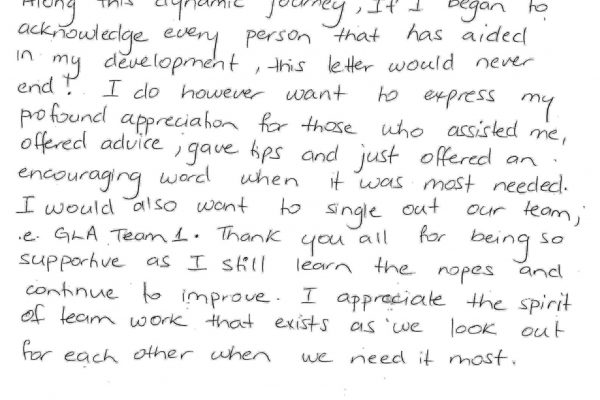 Along this dynamic journey, If I began to
acknowledge every person that has aided
in my development, this letter would never
end! I do however want to express my
profound appreciation for those who assisted me,
offered advice, gave tips and just offered an
encouraging word when it was most needed.
I would also want to single out our team,
i.e. GLA Team 1. Thank you all for being so
supportive as I still learn the ropes and
continue to improve. I appreciate the spirit
of team work that exists as we look out
for each other when we need it most.